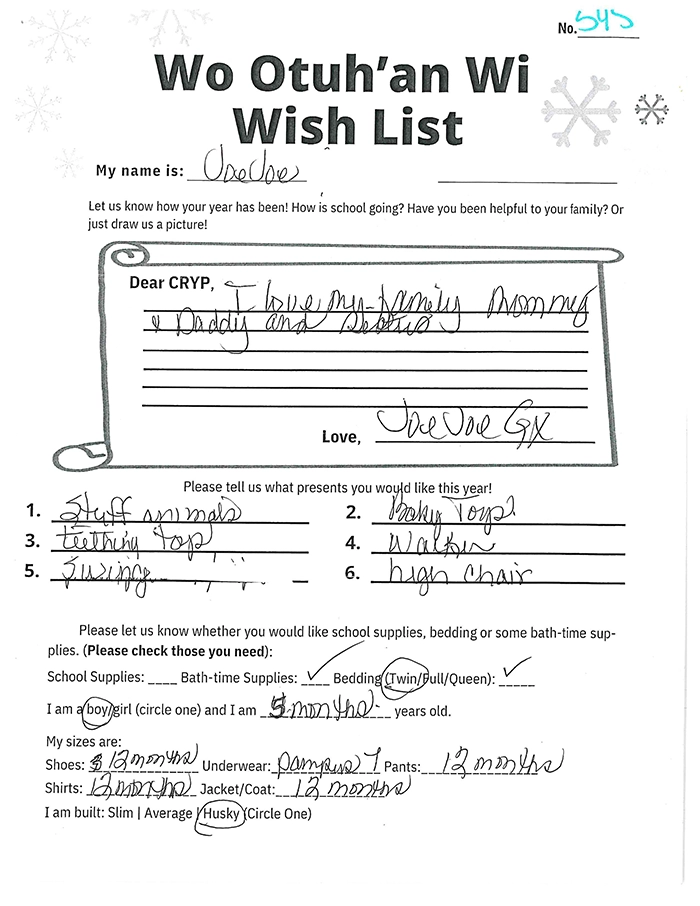 No. 545
Wo Otuh'an Wi
Wish List
My name is: JoeJoe
Let us know how your year has been! How is school going? Have you been helpful to your family? Or
just draw us a picture!
Dear CRYP, I love my family Mommy
& Daddy and
Love, JoeJoe GX
Please tell us what presents you would like this year!
1. Stuff animals 2. Baby Toys
3. teething toy 4. Walker
5. Swing 6. high chair
Please let us know whether you would like school supplies, bedding or some bath-time sup-
plies. (Please check those you need):
School Supplies: ____ Bath-time Supplies: ✓ Bedding (Twin/Full/Queen): ✓
I am a boy/girl (circle one) and I am 5 months years old.
My sizes are:
Shoes: 12 months Underwear: pampers 7 Pants: 12 months
Shirts: 12 months Jacket/Coat: 12 months
I am built: Slim | Average | Husky (Circle One)